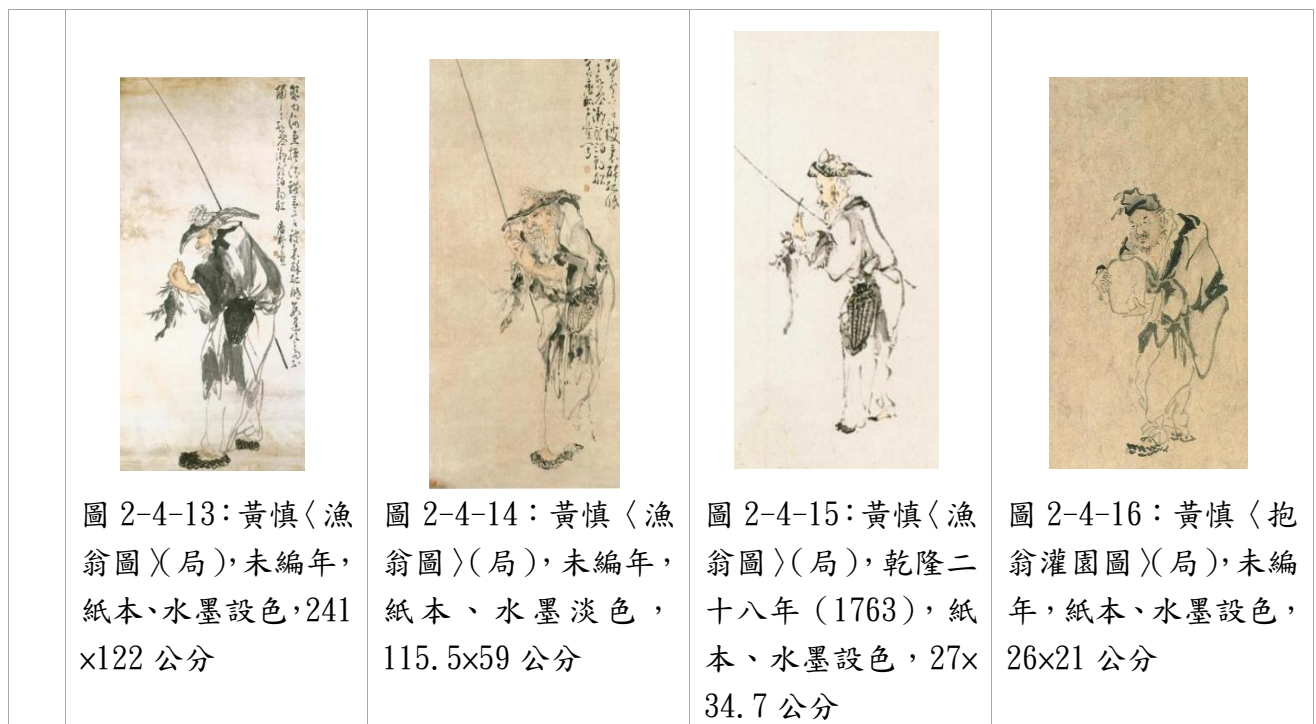 圖 2-4-13：黃慎〈漁
翁圖〉(局)，未編年，
紙本、水墨設色，241
×122 公分
圖 2-4-14：黃慎〈漁
翁圖〉(局)，未編年，
紙本、水墨淡色，
115.5×59 公分
圖 2-4-15：黃慎〈漁
翁圖〉(局)，乾隆二
十八年（1763），紙
本、水墨設色，27×
34.7 公分
圖 2-4-16：黃慎〈抱
翁灌園圖〉(局)，未編
年，紙本、水墨設色，
26×21 公分